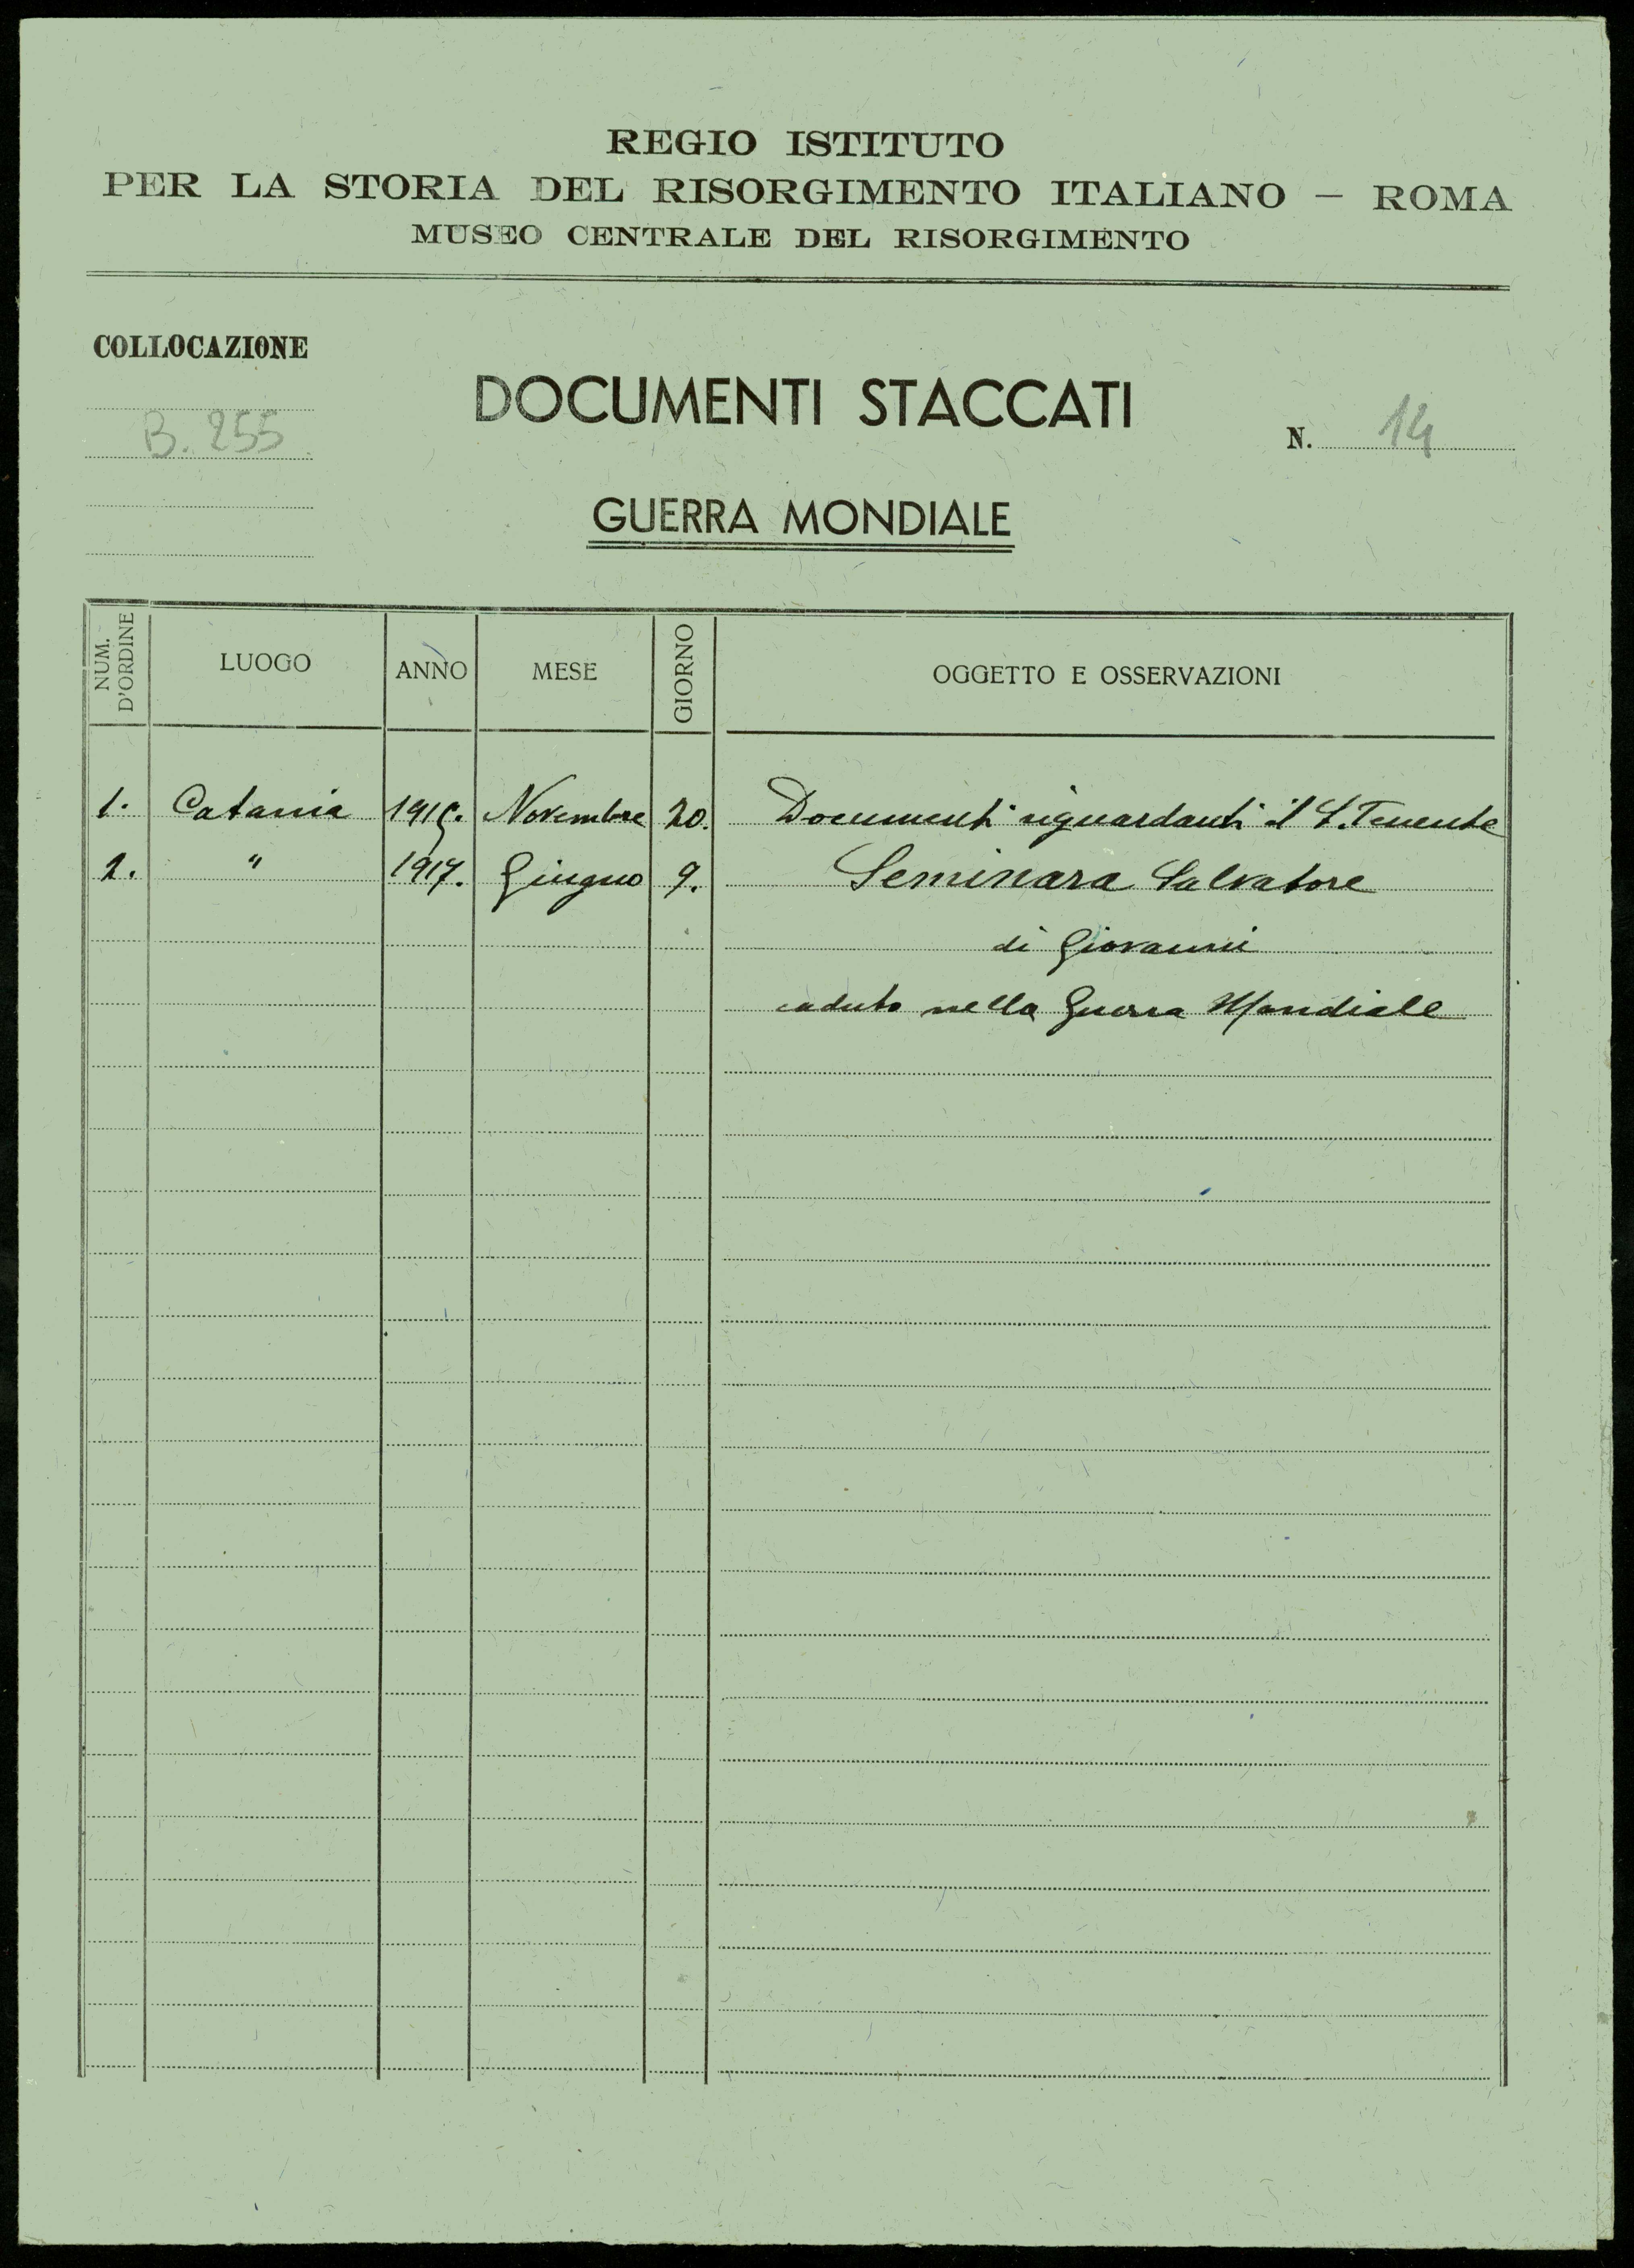 REGIO ISTITUTO
PER LA STORIA DEL RISORGIMENTO ITALIANO — ROMA
MUSEO CENTRALE DEL RISORGIMENTO
COLLOCAZIONE
B. 255
DOCUMENTI STACCATI
N. 14
GUERRA MONDIALE
NUM. D'ORDINE LUOGO ANNO MESE GIORNO OGGETTO E OSSERVAZIONI
1. Catania 1915. Novembre 20. Documenti riguardanti il S. Tenente
2. " 1917. Giugno 9. Seminara Salvatore
di Giovanni
caduto nella Guerra Mondiale